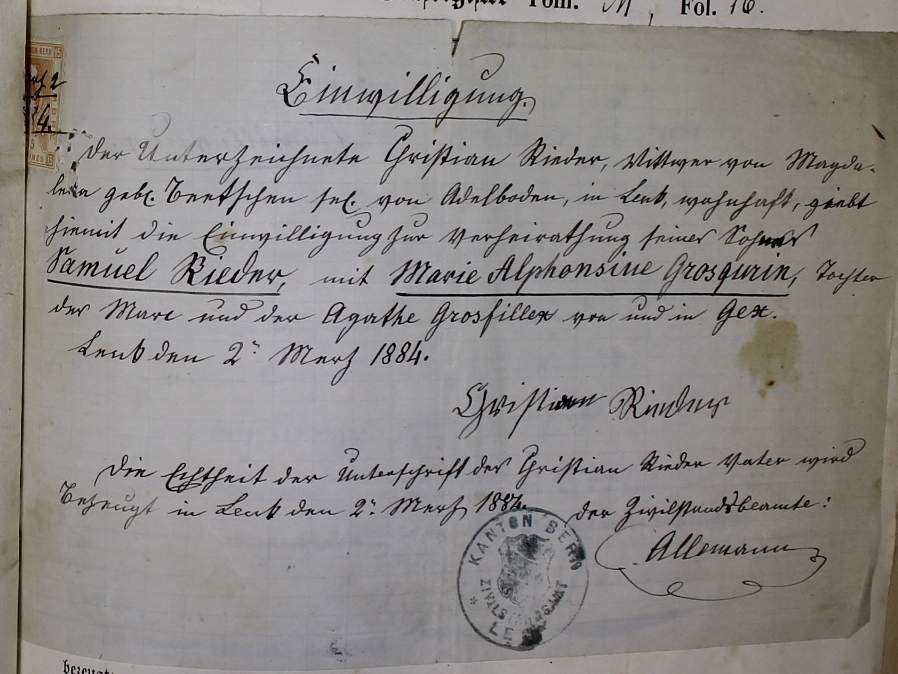 Tom. M, Fol. 16.
Einwilligung.
Der Unterzeichnete Christian Rieder, Wittwer von Magda-
lena geb. Beetschen sel. von Adelboden, in Lenk, wohnhaft, giebt
hiemit die Einwilligung zur Verheirathung seines Sohnes
Samuel Rieder, mit Marie Alphonsine Grosgurin, Tochter
der Marc und der Agathe Grosfillex von und in Gex.
Lenk den 2. Merz 1884.
Christian Rieder
Die Echtheit der Unterschrift des Christian Rieder Vater wird
Bezeugt in Lenk den 2. Merz 1884. Der Zivilstandsbeamte:
Allemann
KANTON BERN
ZIVILSTANDSAMT